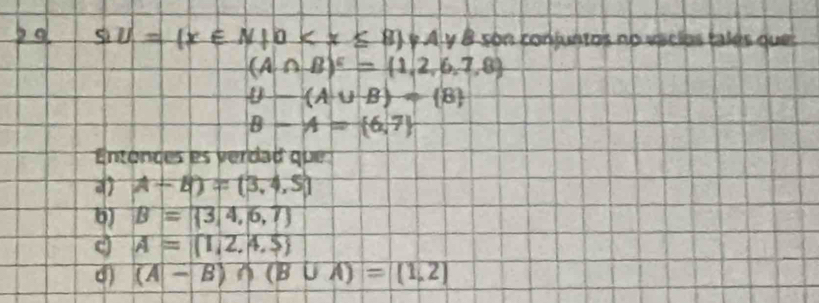 29. Si U = {x ∈ N | 0 < x ≤ 8} y A y B son conjuntos no vacíos tales que:
(A ∩ B)ᶜ = {1, 2, 6, 7, 8}
U - (A ∪ B) = {8}
B - A = {6, 7}
Entonces es verdad que:
a) A - B) = {3, 4, 5}
b) B = {3, 4, 6, 7}
c) A = {1, 2, 4, 5}
d) (A - B) ∩ (B ∪ A) = {1, 2}